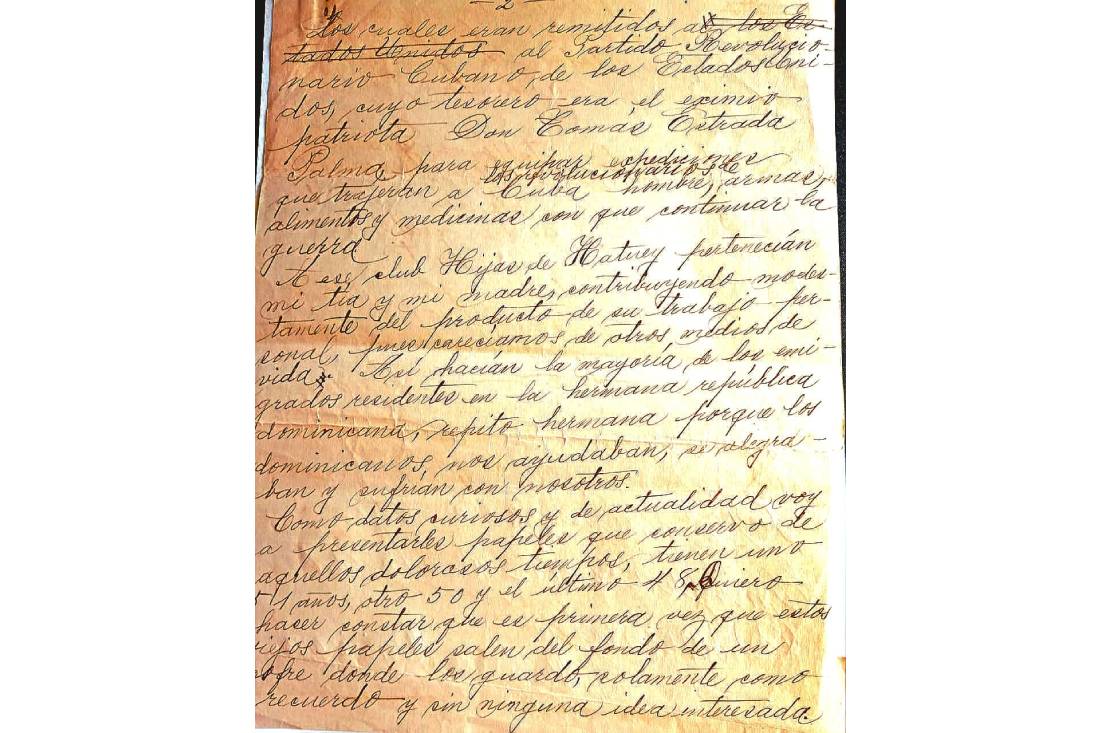 — 2 —
Los cuales eran remitidos a los Es-
tados Unidos al Partido Revolucio-
nario Cubano, de los Estados Uni-
dos, cuyo tesorero era el eximio
patriota Don Tomás Estrada
Palma, para equipar expediciones
los revolucionarios de
que trajeran a Cuba hombre, armas,
alimentos y medicinas con que continuar la
guerra
A ese club Hijas de Hatuey pertenecián
mi tía y mi madre, contribuyendo modes-
tamente del producto de su trabajo per-
sonal, pues careciamos de otros medios de
vida. Así hacián la mayoría de los emi-
grados residentes en la hermana república
dominicana, repito hermana porque los
dominicanos, nos ayudaban, se alegra-
ban y sufrián con nosotros.
Como datos curiosos y de actualidad voy
a presentarles papeles que conservo de
aquellos dolorosos tiempos, tienen uno
51 años, otro 50 y el último 48, Quiero
hacer constar que es primera vez que estos
viejos papeles salen del fondo de un
cofre donde los guardo, solamente como
recuerdo y sin ninguna idea interesada.